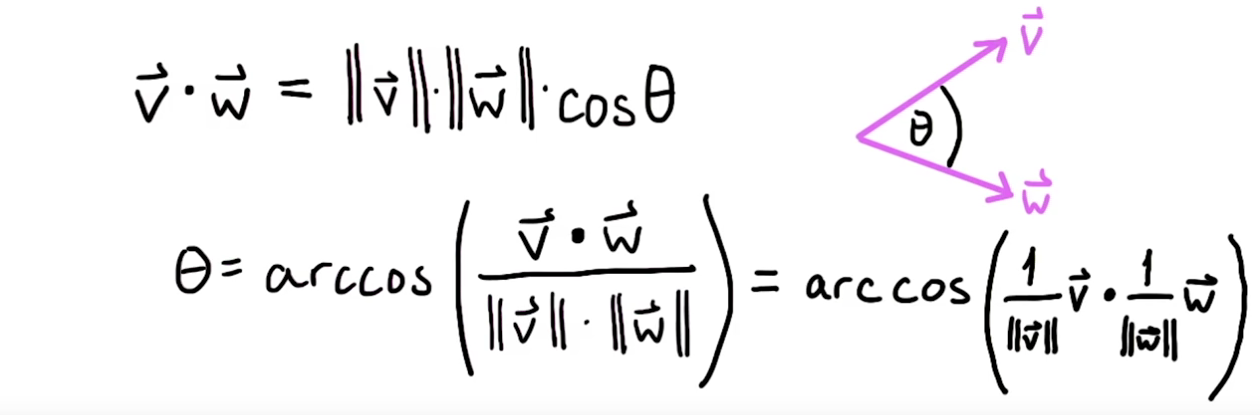 v⃗ · w⃗ = ‖v⃗‖·‖w⃗‖·cosθ
v⃗
θ
w⃗
θ = arccos( (v⃗ • w⃗) / (‖v⃗‖ · ‖w⃗‖) ) = arccos( 1/‖v⃗‖ v⃗ • 1/‖w⃗‖ w⃗ )